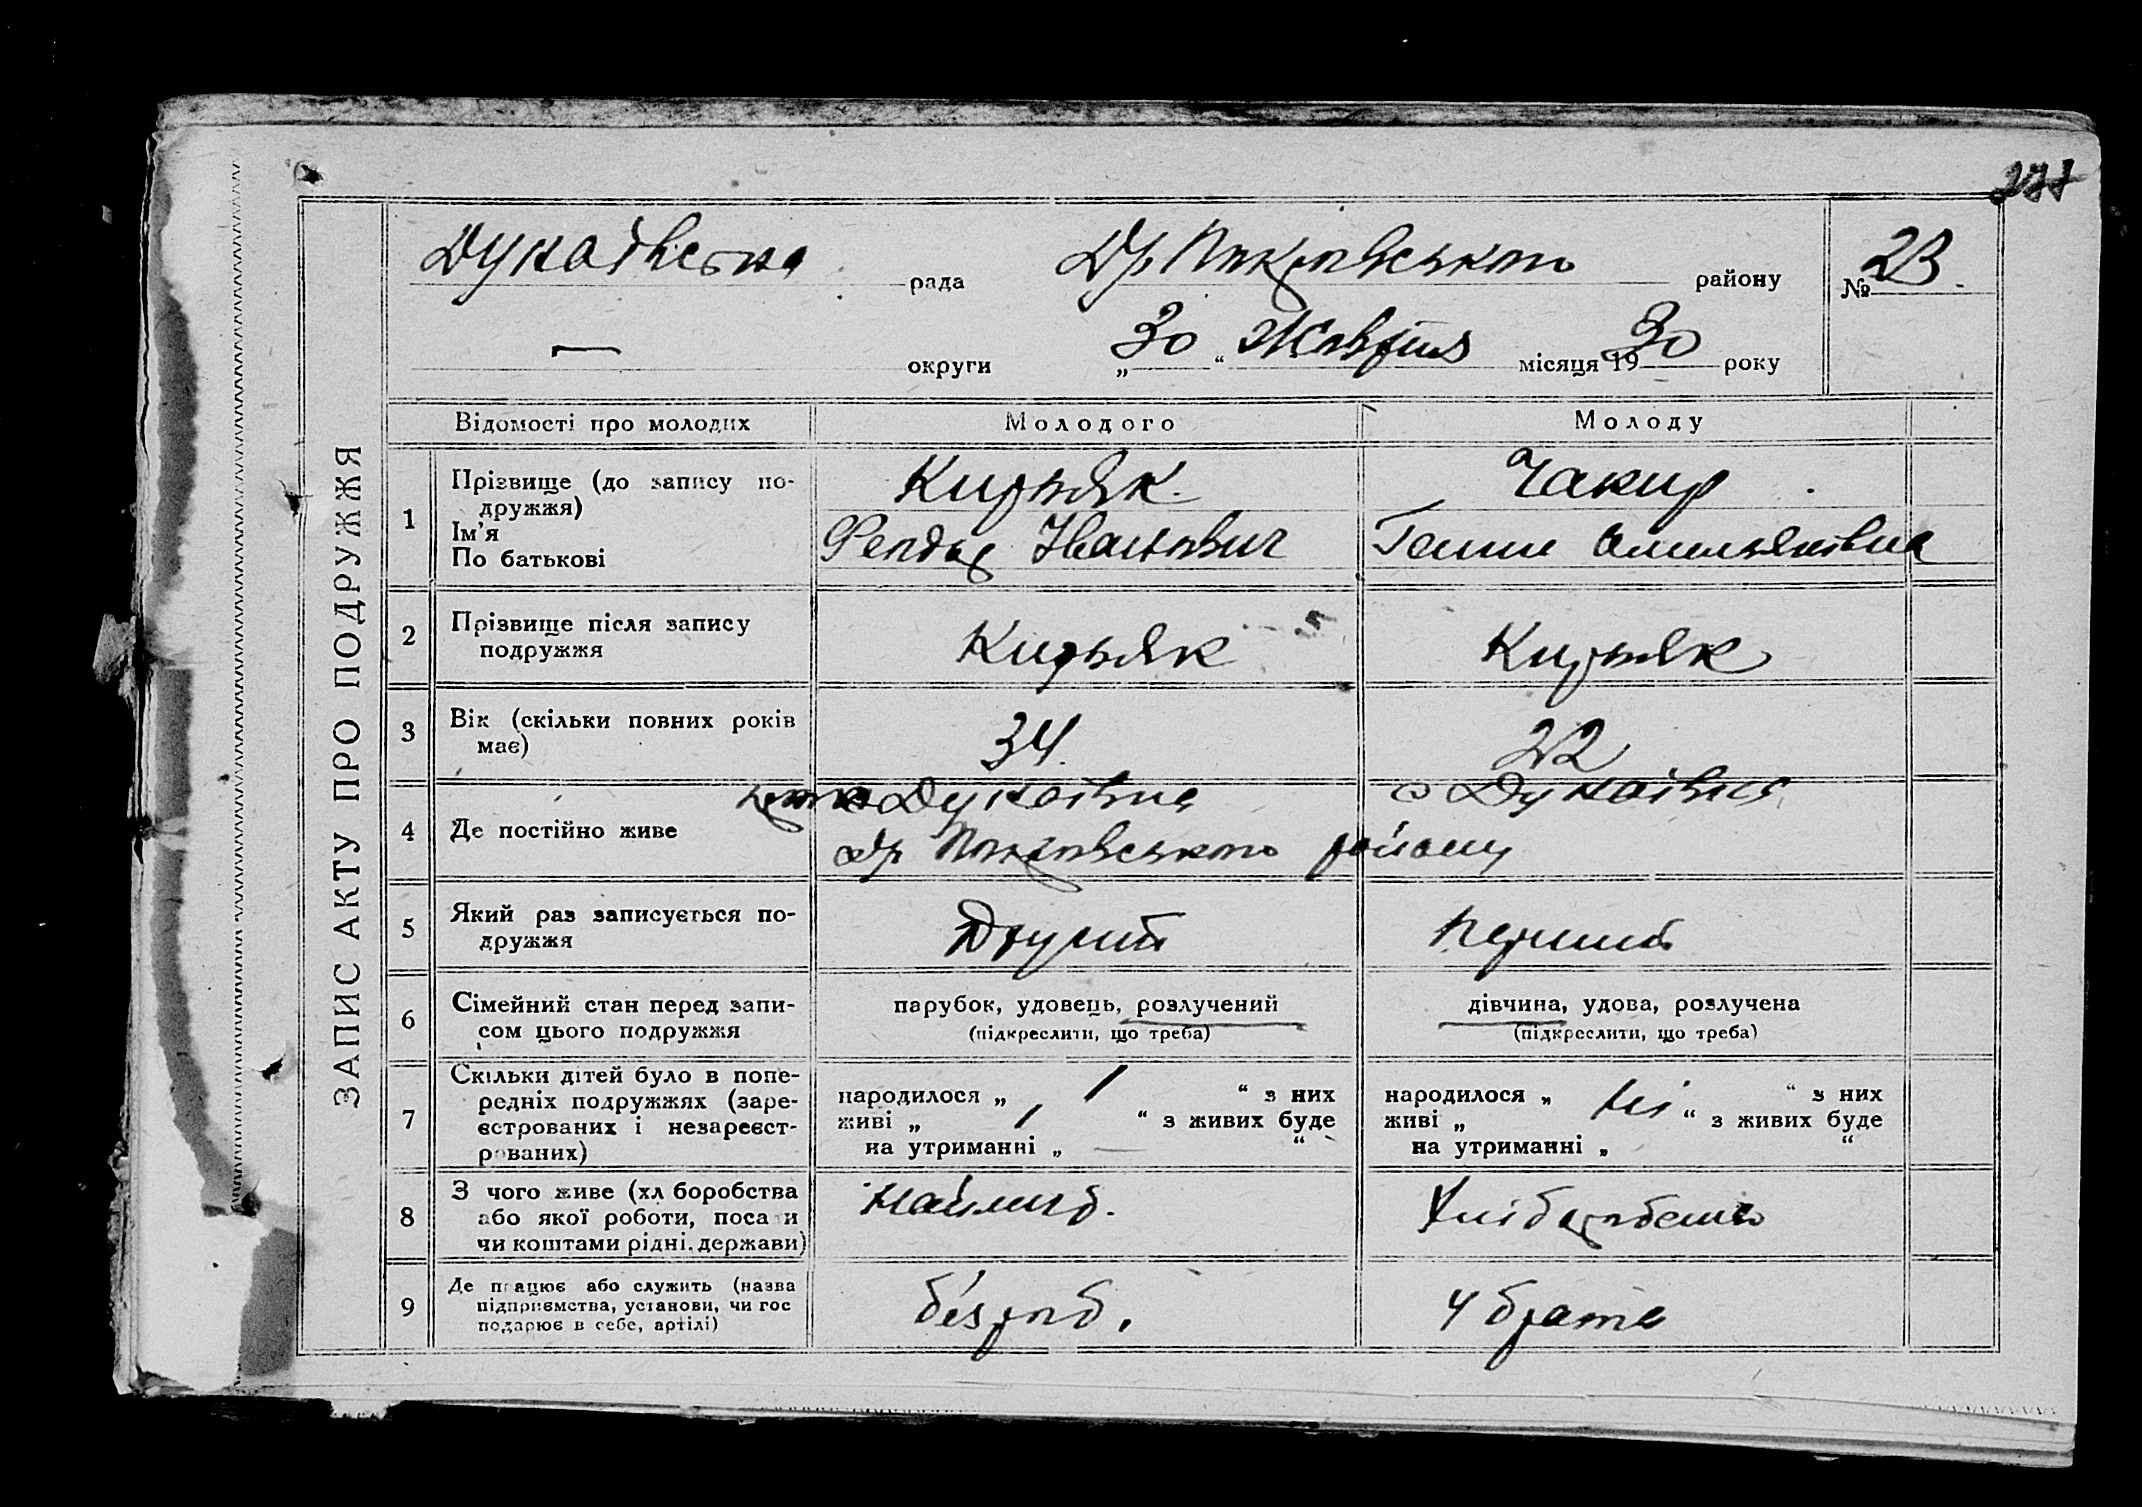 277
Дунаївська рада Др Покровського району № 23
— округи „30“ Жовтня місяця 1930 року
ЗАПИС АКТУ ПРО ПОДРУЖЖЯ
Відомості про молодих Молодого Молоду
1 Прізвище (до запису по-
дружжя)
Ім'я
По батькові
Кирьяк. Чакир
Іванович Ганна Омельянівна
2 Прізвище після запису
подружжя
Кирьяк Кирьяк
3 Вік (скільки повних років
має)
34. 22
4 Де постійно живе
Дунаївка с Дунаївка
Др Покровського району
5 Який раз записується по-
дружжя
Другий перший
6 Сімейний стан перед запи-
сом цього подружжя
парубок, удовець, розлучений
(підкреслити, що треба)
дівчина, удова, розлучена
(підкреслити, що треба)
7 Скільки дітей було в попе-
редніх подружжях (заре-
єстрованих і незареєст-
рованих)
народилося „ 1 “ з них
живі „ 1 “ з живих буде
на утриманні „ — “
народилося „ ні “ з них
живі „ “ з живих буде
на утриманні „ “
8 З чого живе (хл боробства
або якої роботи, поса и
чи коштами рідні. держави)
наймит. Хліборобство
9 Де працює або служить (назва
підприємства, установи, чи гос
подарює в себе, артілі)
безроб. У брата